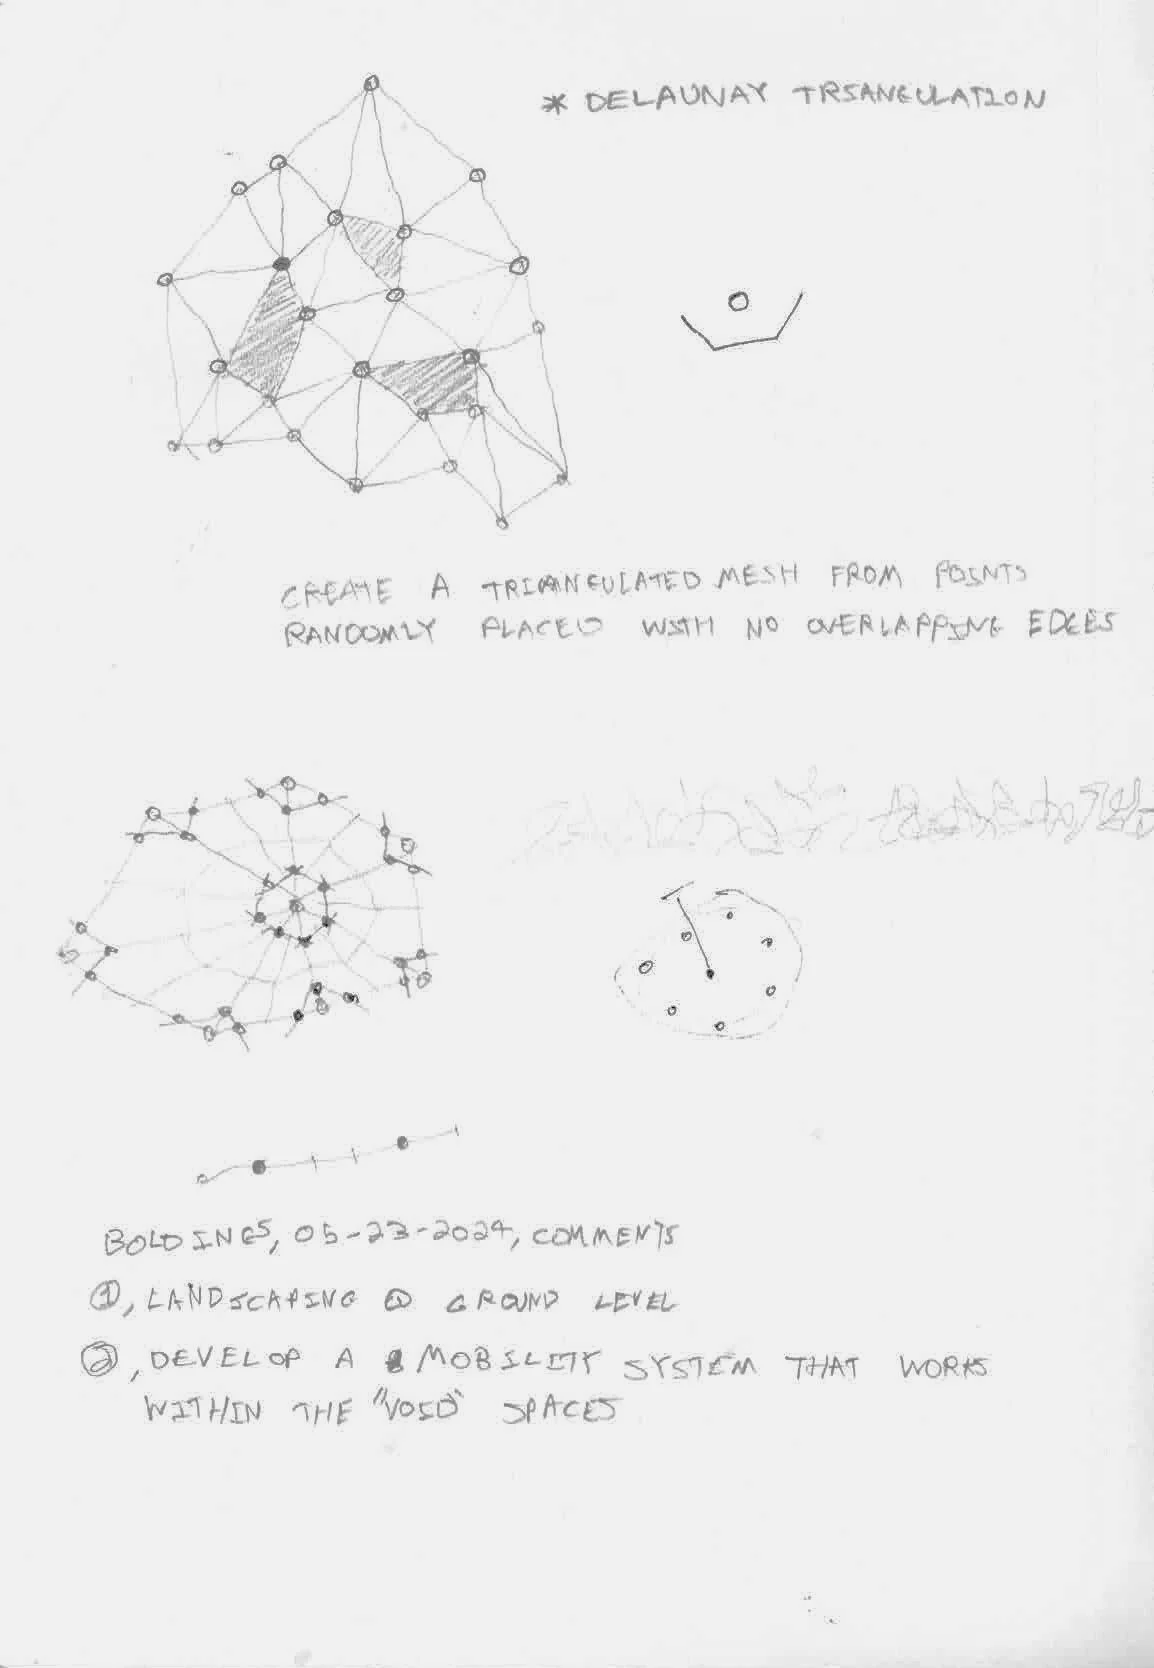 * DELAUNAY TRIANGULATION
CREATE A TRIANGULATED MESH FROM POINTS
RANDOMLY PLACED WITH NO OVERLAPPING EDGES
BOLDINGS, 05-23-2024, COMMENTS
①, LANDSCAPING @ GROUND LEVEL
②, DEVELOP A MOBILITY SYSTEM THAT WORKS
WITHIN THE "VOID" SPACES